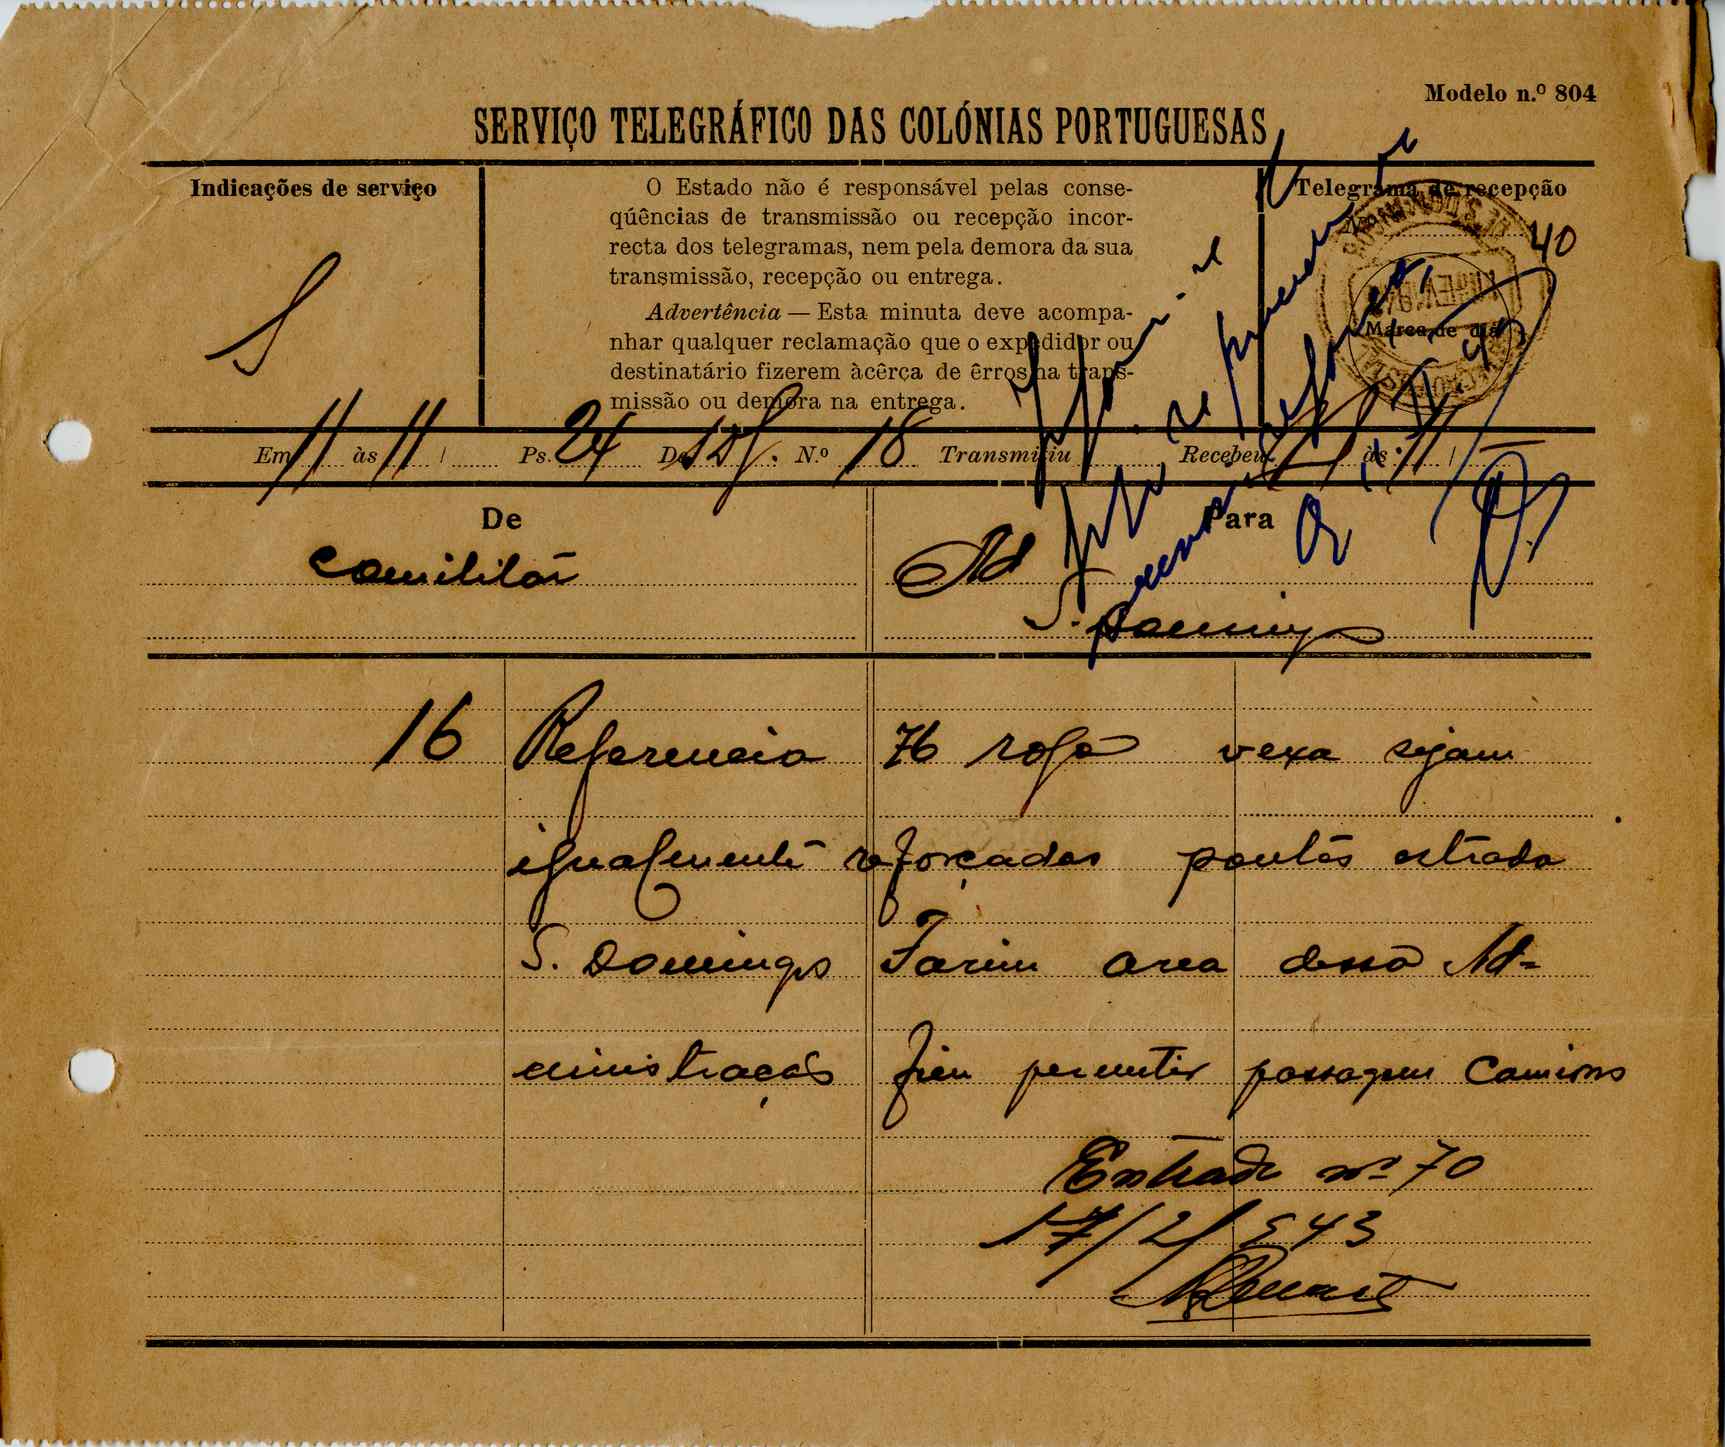 Modelo n.º 804
SERVIÇO TELEGRÁFICO DAS COLÓNIAS PORTUGUESAS
Indicações de serviço
S
O Estado não é responsável pelas conse-
qúências de transmissão ou recepção incor-
recta dos telegramas, nem pela demora da sua
transmissão, recepção ou entrega.
Advertência — Esta minuta deve acompa-
nhar qualquer reclamação que o expedidor ou
destinatário fizerem àcêrca de êrros na trans-
missão ou demora na entrega.
Telegrama de recepção
40
Marca de dia
Em 11 às 11 / Ps. 24 De N.º 18 Transmitiu Recebeu às 11 /
De
Para
Comilitar
Ad
S. Domingos
16 Referencia 76 rogo vexa sejam
igualmente reforçadas pontes estrada
S. Domingos Farim area dessa Ad-
ministração fim permitir passagem Camions
Entrada nº 70
17/2/943